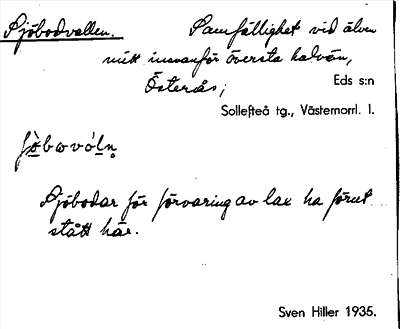 Sjöbodvallen. Samfällighet vid älven
mitt innanför översta halvön,
Österås; Eds s:n
Sollefteå tg., Västernorrl. l.
Sjöbodar för förvaring av lax ha förut
stått här.
Sven Hiller 1935.